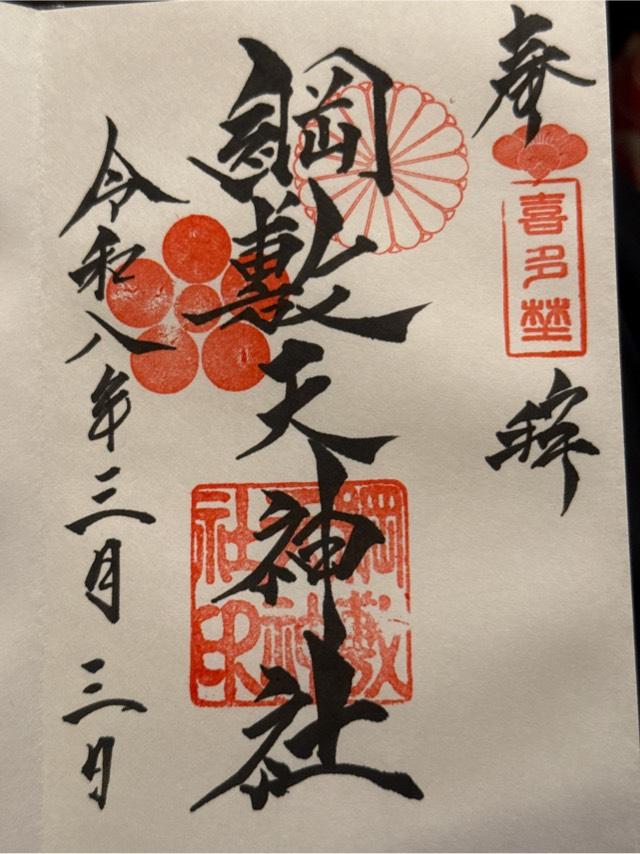 奉拝
喜多埜
綱敷天神社
綱敷
天神
社印
令和八年三月三日